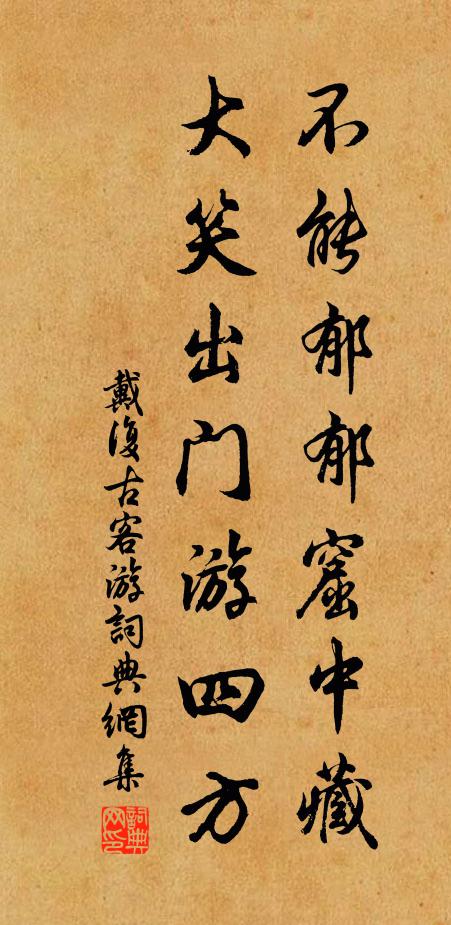 不能郁郁窟中藏
大笑出门游四方
戴復古客游詞典網集
詞典网印